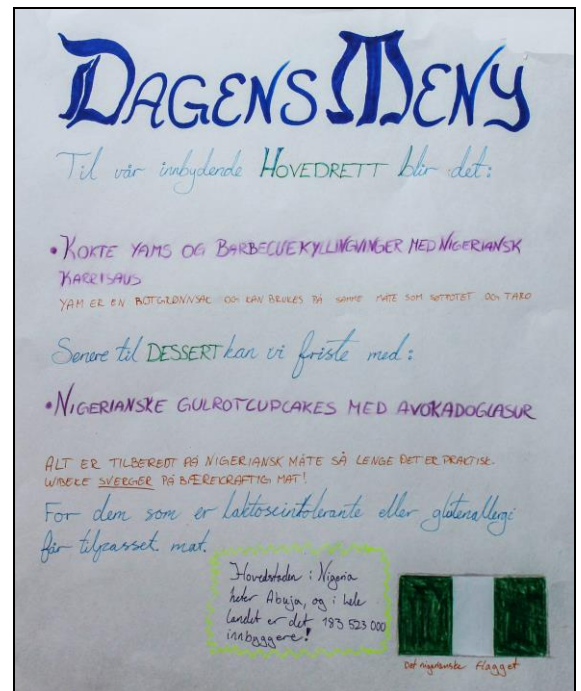 DAGENS MENY
Til vår innbydende HOVEDRETT blir det:
• KOKTE YAMS OG BARBECUEKYLLINGVINGER MED NIGERIANSK
KARRISAUS
YAM ER EN ROTGRØNNSAK OG KAN BRUKES PÅ SAMME MÅTE SOM SØTPOTET OG TARO
Senere til DESSERT kan vi friste med:
• NIGERIANSKE GULROTCUPCAKES MED AVOKADOGLASUR
ALT ER TILBEREDT PÅ NIGERIANSK MÅTE SÅ LENGE DET ER PRAKTISK.
VIBEKE SVERGER PÅ BÆREKRAFTIG MAT!
For dem som er laktoseintolerante eller glutenallergi
får tilpasset mat.
Hovedstaden i Nigeria
heter Abuja, og i hele
landet er det 183 523 000
innbyggere!
Det nigerianske flagget